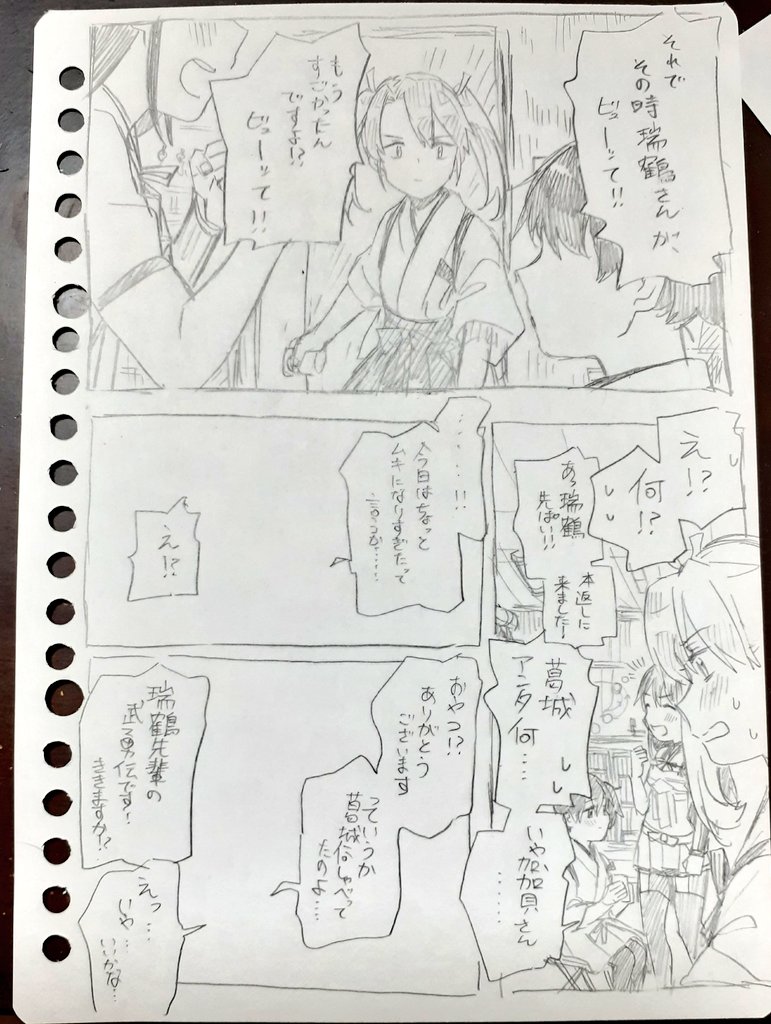 それで
その時瑞鶴さんが、
ビューッて!!
もう
すごかったん
ですよ!?
ビューッて!!
え!?
何!?
あっ瑞鶴
先ぱい!!
本返しに
来ました!
葛城
アンタ何…
いや加賀さん
……
……!!
今日はちょっと
ムキになりすぎたって
言うか……
え!?
おやつ!?
ありがとう
ございます
っていうか
葛城何しゃべって
たのよ…
瑞鶴先輩の
武勇伝です!
ききますか!?
えっ…
いや…
いいかな…